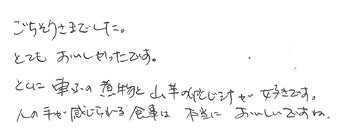 ごちそうさまでした。
とても おいしかったです。
とくに 車ふの煮物と 山芋の が 好きです。
人の手が感じられる 食事は 本当に おいしいですね。